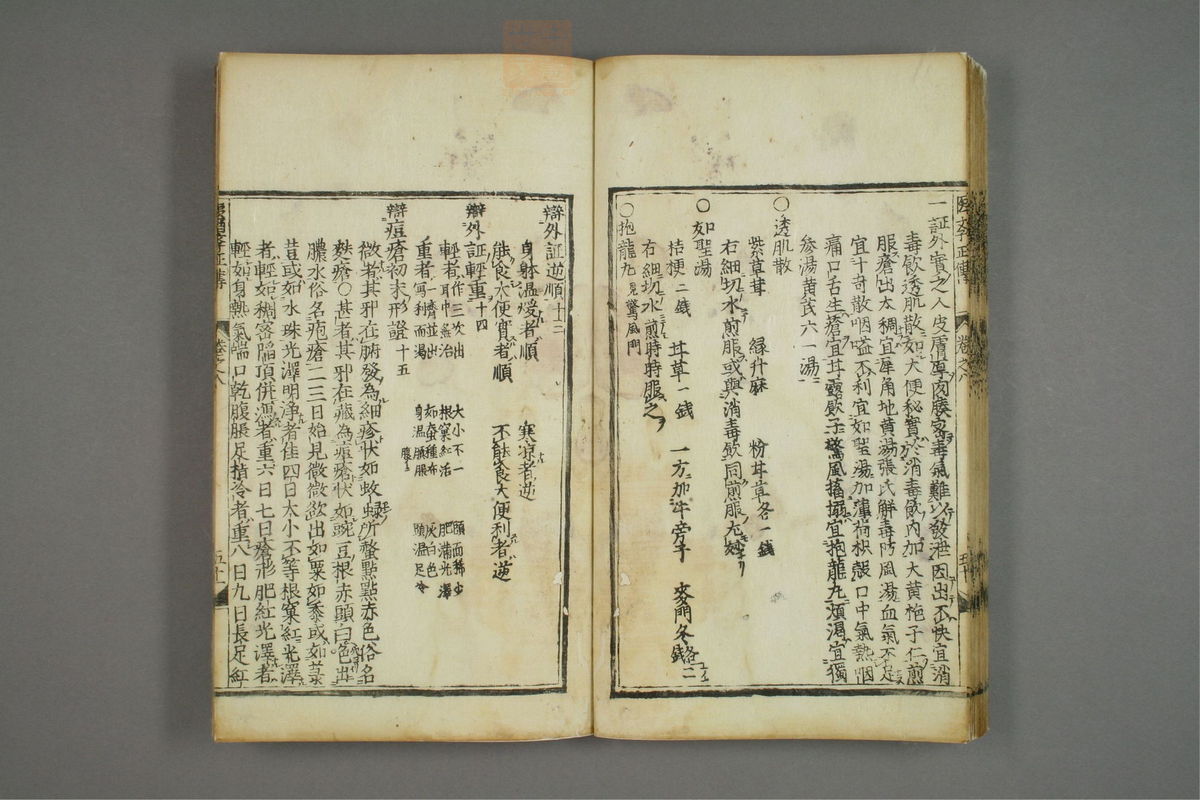 醫學正傳 卷之八
一証外實之人皮膚厚肉腠密毒氣難以發泄因出不快宜消
毒飲透肌散如大便秘實於消毒飲内加大黄梔子仁煎
服瘡出太稠宜犀角地黄湯張氏解毒防風湯血氣不足
宜十奇散咽嗌不利宜如聖湯加薄荷枳殼口中氣熱咽
痛口舌生瘡宜甘露飲子驚風搐搦宜抱龍丸煩渴宜獨
參湯黄芪六一湯
○透肌散
紫草茸 緑升麻 粉甘草各一錢
右細切水煎服或與消毒飲同煎服尤妙
○如聖湯
桔梗二錢 甘草一錢 一方加牛旁子 麥門冬各二錢
右細切水煎時時服之
○抱龍丸見驚風門
辯外証逆順十三
身躰温煖者順 寒凉者逆
能食大便實者順 不能食大便利者逆
辯外証輕重十四
輕者作三次出 大小不一 頭面稀少
耳中無 根窠紅活 肥滿光澤
重者一齊並出 如蚕種布 灰白色
瀉利而渴 身温腹脹 頭温足冷
辯痘瘡初末形證十五
微者其邪在腑發為細疹状如蚊虫所螫點點赤色俗名
麩瘡○甚者其邪在藏為痘瘡状如豌豆根赤頭白色出
膿水俗名疱瘡二三日始見微微欲出如粟如黍或如菉
荳或如水珠光澤明净者佳四日大小不等根窠紅光澤
者輕如稠密陥頂併濕者重六日七日瘡形肥紅光澤者
輕如身熱氣喘口乾腹脹足指冷者重八日九日長足紅